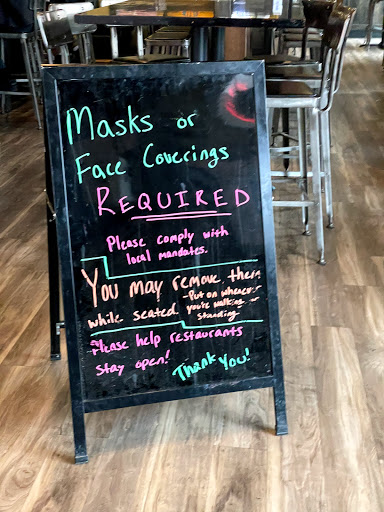 Masks or
Face Coverings
REQUIRED
Please comply with
local mandates.
You may remove them
while seated -Put on whenever
you're walking or
standing
Please help restaurants
stay open!
Thank You!